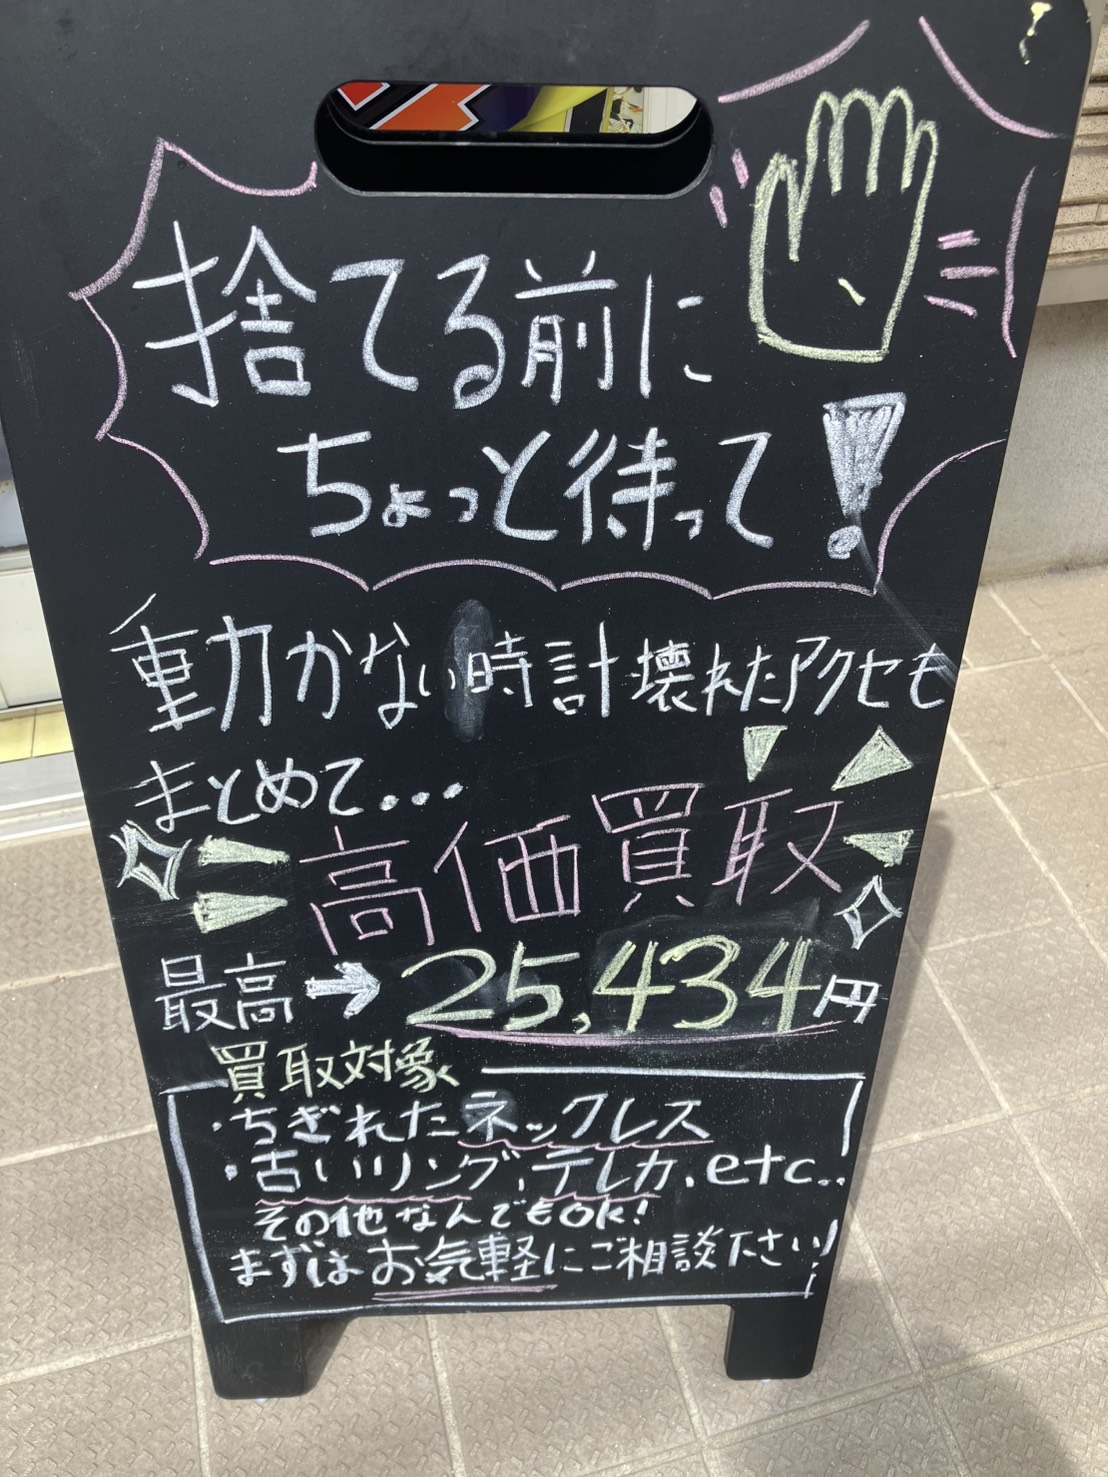 捨てる前に
ちょっと待って!
動かない時計 壊れたアクセも
まとめて...
高価買取
最高→25,434円
買取対象
・ちぎれたネックレス
・古いリング、テレカ.etc..
その他なんでもOK!
まずはお気軽にご相談下さい!